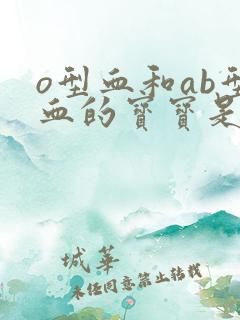 o型血和ab型
血的宝宝是
城華
未经同意禁止转载